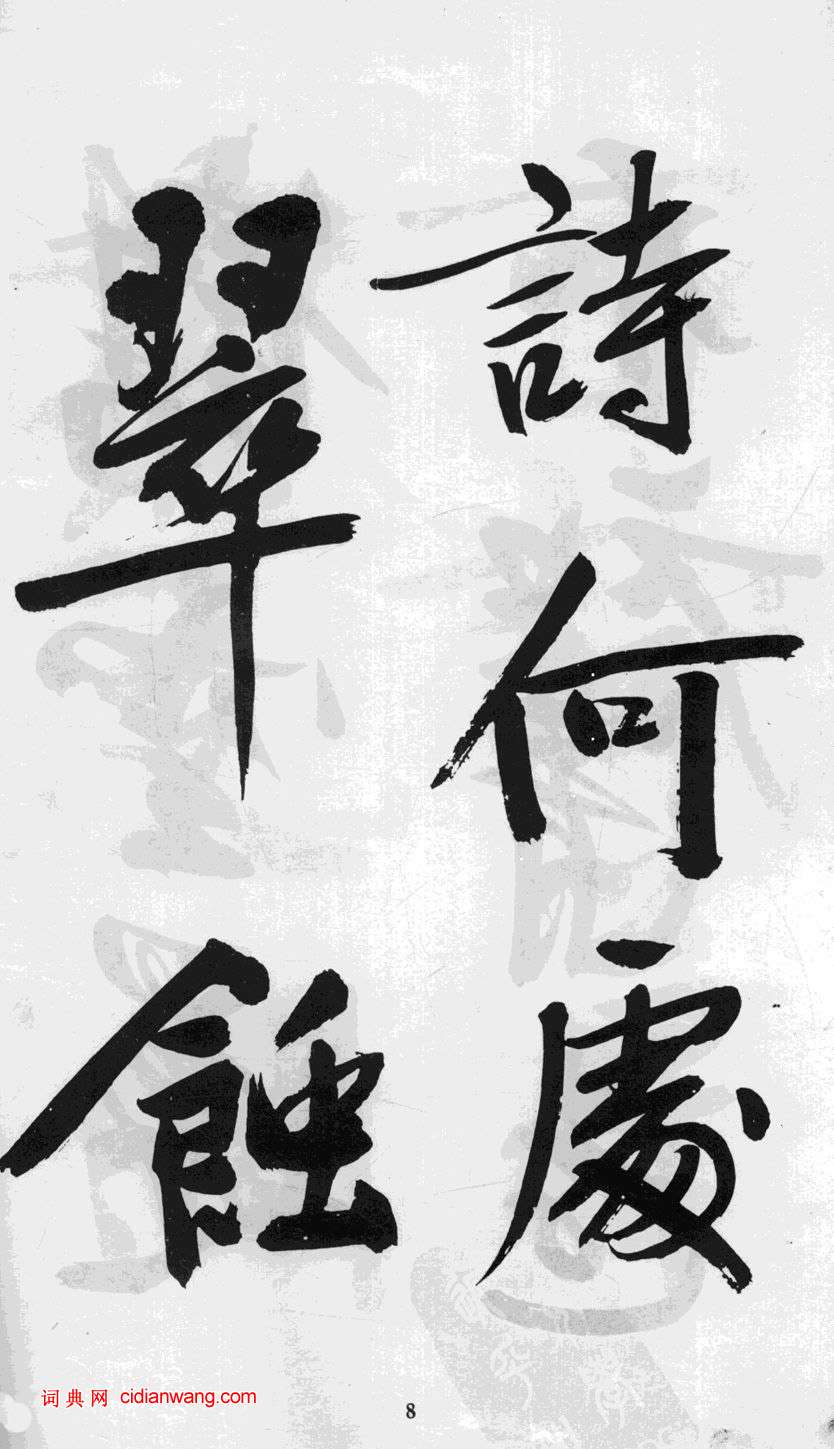 詩何處
翠蝕
词典网 cidianwang.com
8